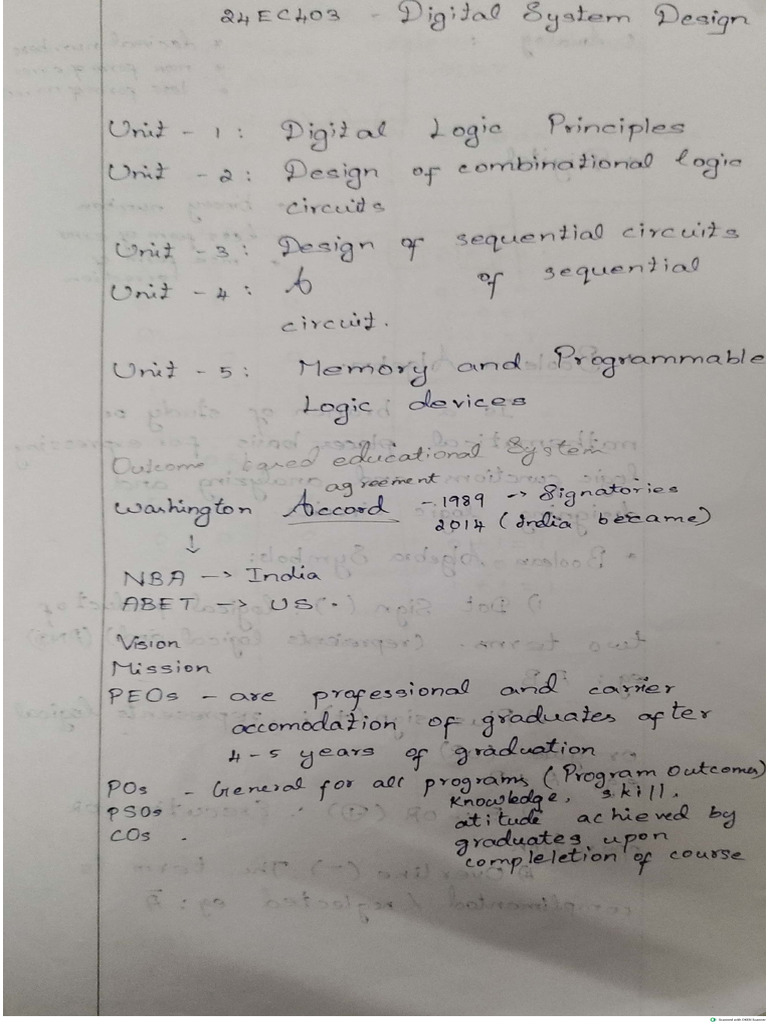 24EC403 - Digital System Design
Unit - 1 : Digital Logic Principles
Unit - 2 : Design of combinational logic
circuits
Unit - 3 : Design of sequential circuits
Unit - 4 : A of sequential
circuit.
Unit - 5 : Memory and Programmable
Logic devices
Outcome based educational System
agreement
Washington Accord - 1989 -> Signatories
2014 (India became)
↓
NBA -> India
ABET -> US.
Vision
Mission
PEOs - are professional and carrier
accomodation of graduates after
4-5 years of graduation
POs - General for all programs (Program Outcomes)
knowledge, skill,
PSOs
atitude achieved by
COs .
graduates upon
compleletion of course
Scanned with OKEN Scanner